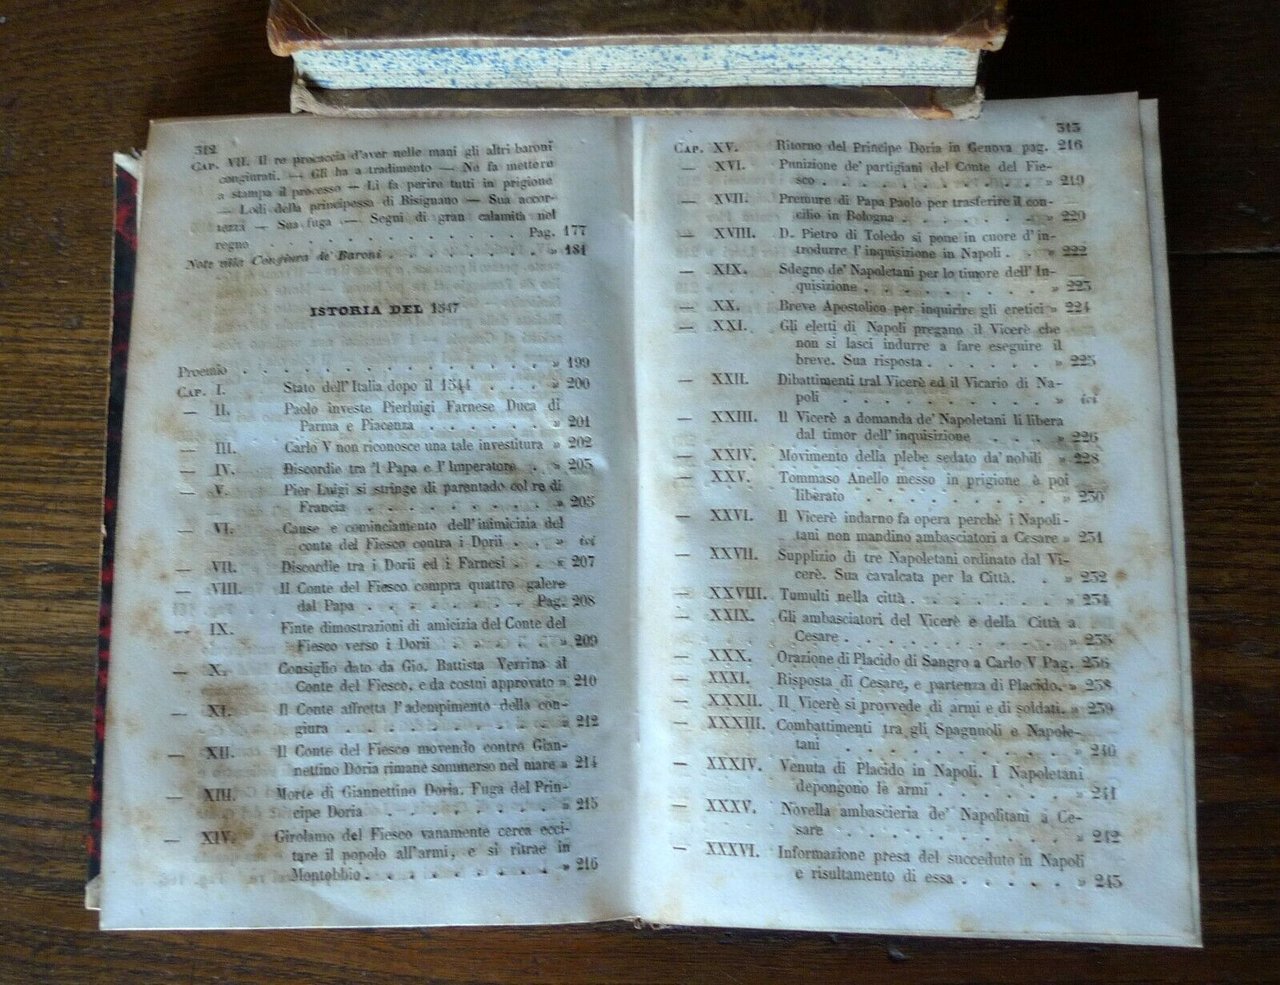 312
CAP. VII. Il re procaccia d'aver nelle mani gli altri baroni
congiurati. — Gli ha a tradimento — Ne fa mettere
a stampa il processo — Li fa perire tutti in prigione
— Lodi della principessa di Bisignano — Sua accor-
tezza — Sua fuga — Segni di gran calamità nel
regno . . . . . . . . . . . Pag. 177
Note alla Congiura de' Baroni . . . . . . . . » 181
ISTORIA DEL 1547
Proemio . . . . . . . . . . . . . » 199
CAP. I. Stato dell'Italia dopo il 1544 . . . . » 200
— II. Paolo investe Pierluigi Farnese Duca di
Parma e Piacenza . . . . . . » 201
— III. Carlo V non riconosce una tale investitura » 202
— IV. Discordie tra 'l Papa e l'Imperatore . . » 203
— V. Pier Luigi si stringe di parentado col re di
Francia . . . . . . . . . » 205
— VI. Cause e cominciamento dell'inimicizia del
conte del Fiesco contra i Dorii . . » ivi
— VII. Discordie tra i Dorii ed i Farnesi . . » 207
— VIII. Il Conte del Fiesco compra quattro galere
dal Papa . . . . . . . . Pag. 208
— IX. Finte dimostrazioni di amicizia del Conte del
Fiesco verso i Dorii . . . . . . » 209
— X. Consiglio dato da Gio. Battista Verrina al
Conte del Fiesco, e da costui approvato » 210
— XI. Il Conte affretta l'adempimento della con-
giura . . . . . . . . . . » 212
— XII. Il Conte del Fiesco movendo contro Gian-
nettino Doria rimane sommerso nel mare » 214
— XIII. Morte di Giannettino Doria. Fuga del Prin-
cipe Doria . . . . . . . . . » 215
— XIV. Girolamo del Fiesco vanamente cerca ecci-
tare il popolo all'armi, e si ritrae in
Montobbio . . . . . . . . . » 216
313
CAP. XV. Ritorno del Principe Doria in Genova pag. 216
— XVI. Punizione de' partigiani del Conte del Fie-
sco . . . . . . . . . . . » 219
— XVII. Premure di Papa Paolo per trasferire il con-
cilio in Bologna . . . . . . . » 220
— XVIII. D. Pietro di Toledo si pone in cuore d'in-
trodurre l'inquisizione in Napoli . . » 222
— XIX. Sdegno de' Napoletani per lo timore dell'In-
quisizione . . . . . . . . . » 223
— XX. Breve Apostolico per inquirire gli eretici » 224
— XXI. Gli eletti di Napoli pregano il Vicerè che
non si lasci indurre a fare eseguire il
breve. Sua risposta . . . . . . » 225
— XXII. Dibattimenti tral Vicerè ed il Vicario di Na-
poli . . . . . . . . . . » ivi
— XXIII. Il Vicerè a domanda de' Napoletani li libera
dal timor dell'inquisizione . . . . » 226
— XXIV. Movimento della plebe sedato da' nobili » 228
— XXV. Tommaso Anello messo in prigione è poi
liberato . . . . . . . . . » 230
— XXVI. Il Vicerè indarno fa opera perchè i Napoli-
tani non mandino ambasciatori a Cesare » 231
— XXVII. Supplizio di tre Napoletani ordinato dal Vi-
cerè. Sua cavalcata per la Città. . » 232
— XXVIII. Tumulti nella città . . . . . . . » 234
— XXIX. Gli ambasciatori del Vicerè e della Città a
Cesare . . . . . . . . . . » 235
— XXX. Orazione di Placido di Sangro a Carlo V Pag. 236
— XXXI. Risposta di Cesare, e partenza di Placido. » 238
— XXXII. Il Vicerè si provvede di armi e di soldati. » 239
— XXXIII. Combattimenti tra gli Spagnuoli e Napole-
tani . . . . . . . . . . » 240
— XXXIV. Venuta di Placido in Napoli. I Napoletani
depongono le armi . . . . . . » 241
— XXXV. Novella ambascieria de' Napolitani a Ce-
sare . . . . . . . . . . » 242
— XXXVI. Informazione presa del succeduto in Napoli
e risultamento di essa . . . . . » 243